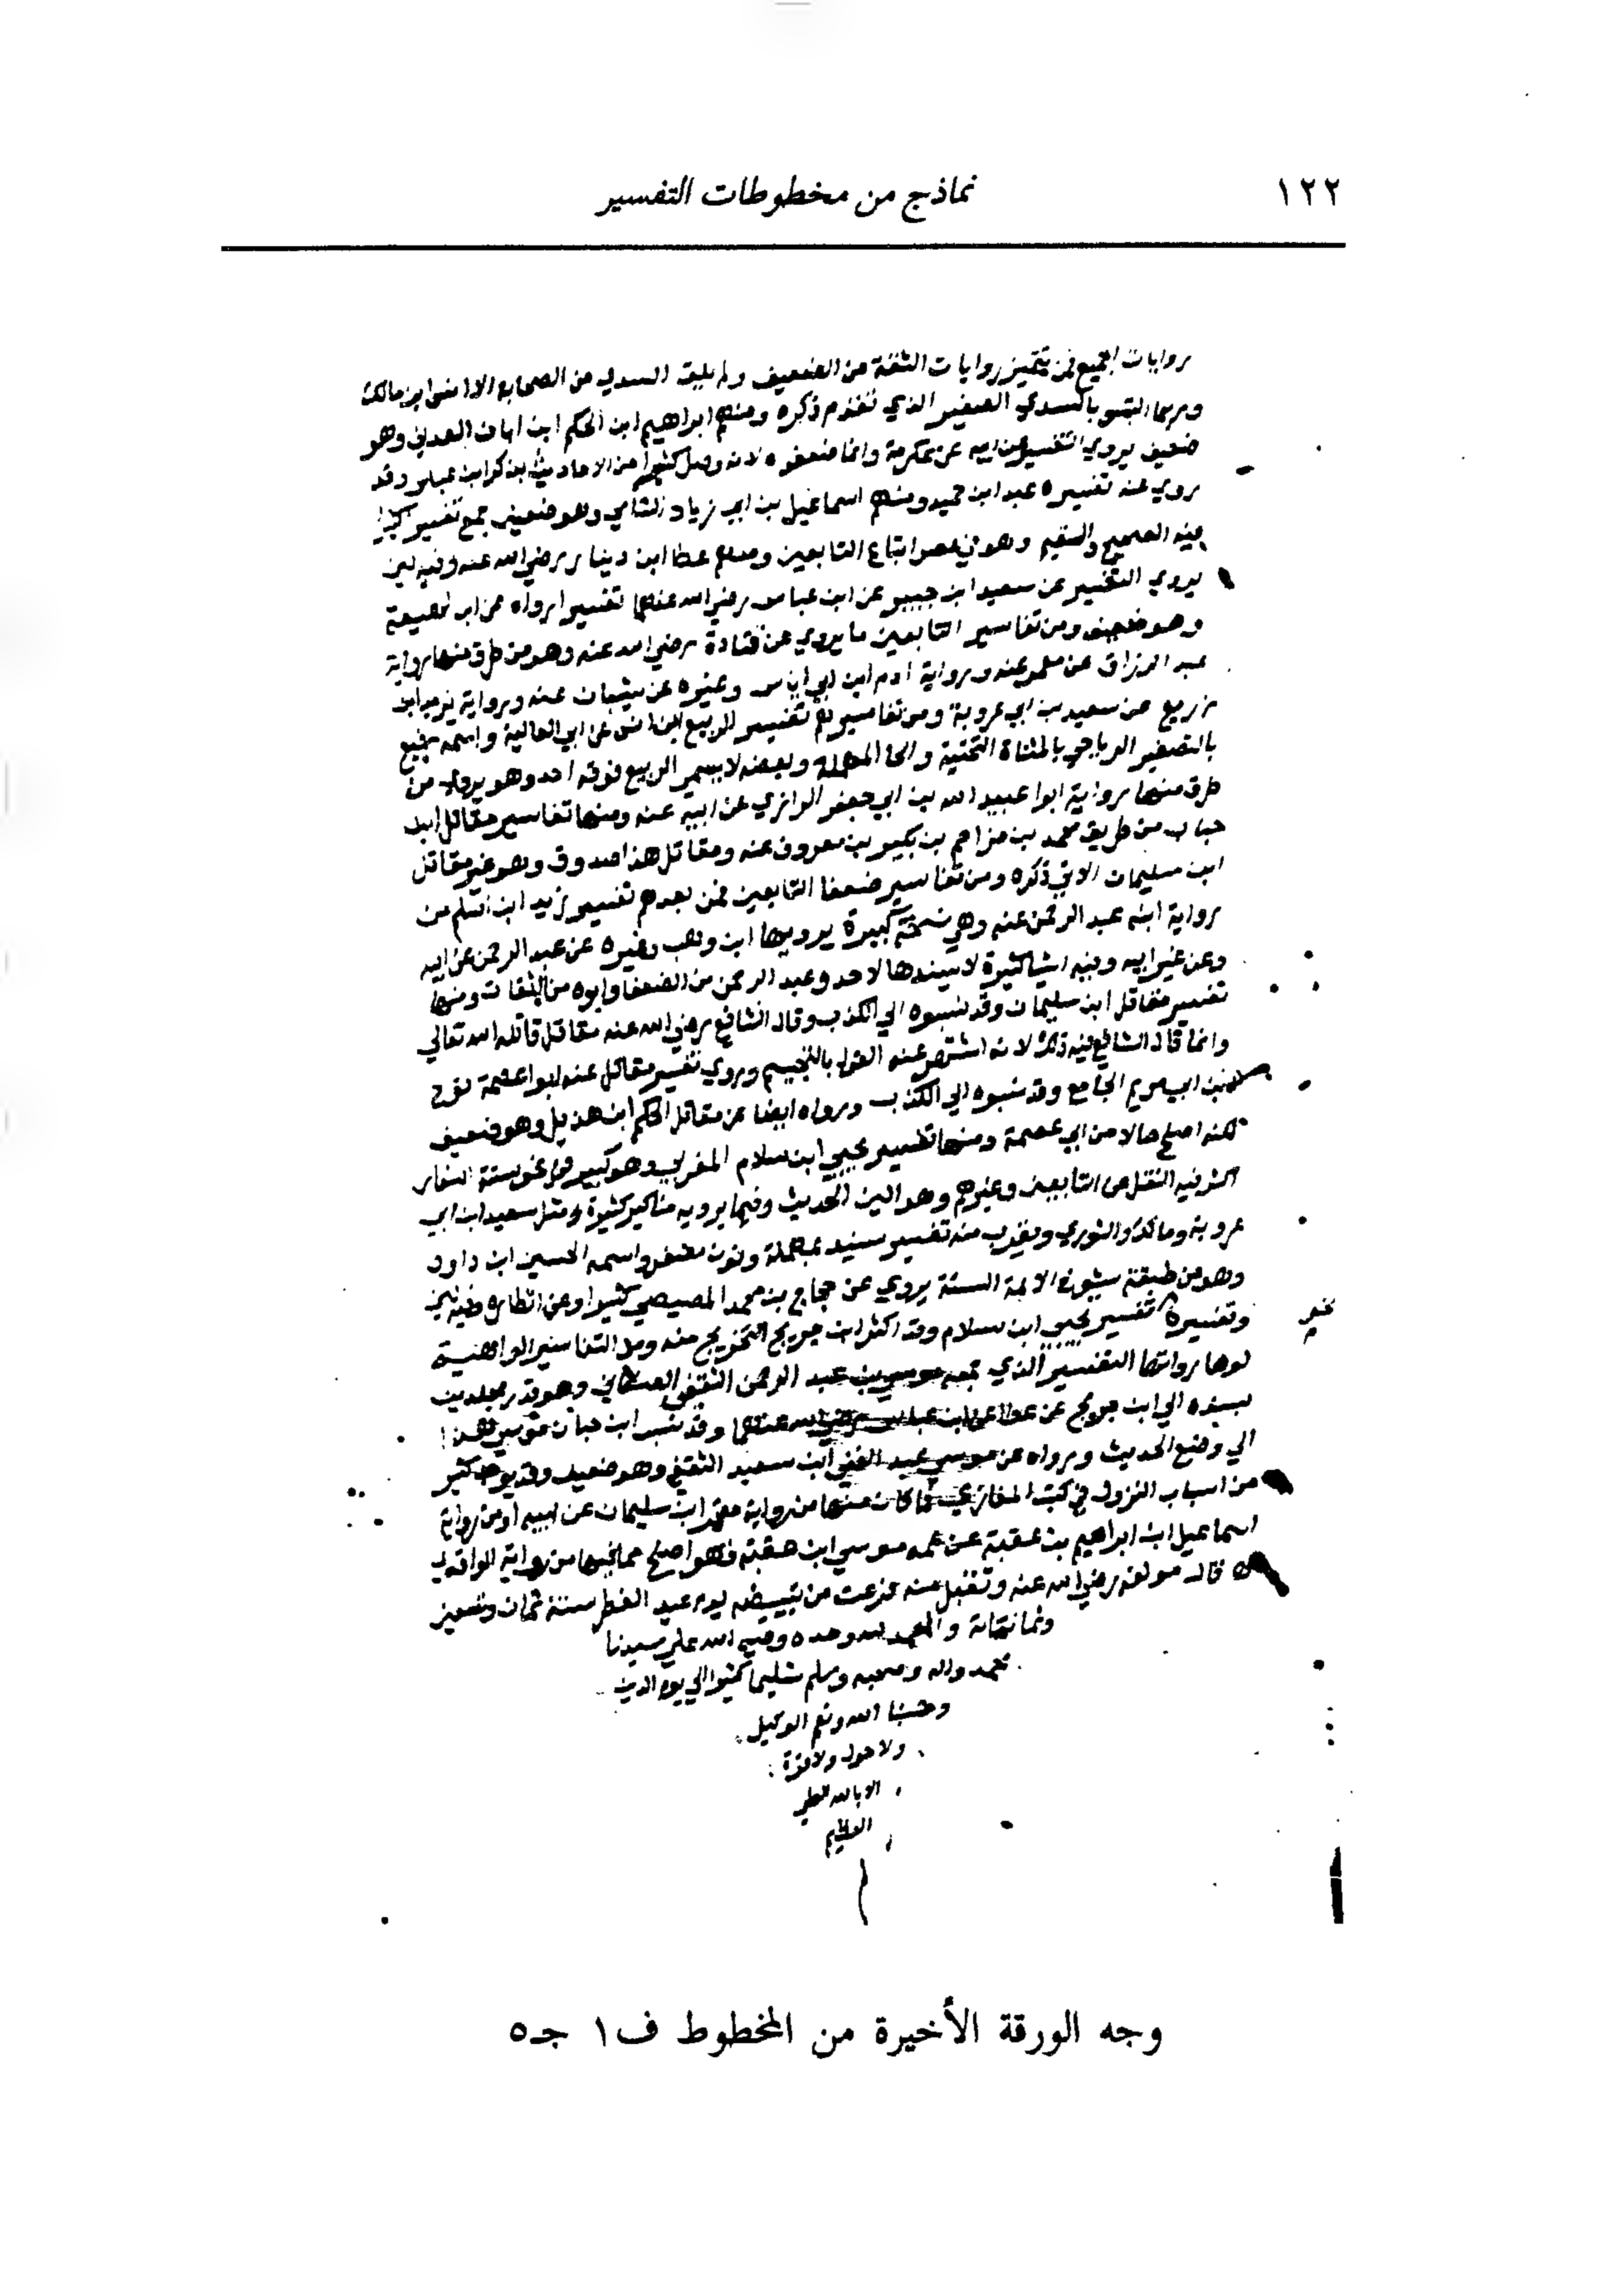 ١٢٢
نماذج من مخطوطات التفسير
روايات الجميع فلم يتميز روايات الثقة من الضعيف ولم يلق السدي من الصحابة الا انس ابن مالك
وربما التبس بالسدي الصغير الذي تقدم ذكره ومنهم ابراهيم ابن الحكم ابن ابان العدني وهو
ضعيف يروي التفسير عن ابيه عن عكرمة وانما ضعفوه لانه وصل كثيرا من الاحاديث بذكر ابن عباس وقد
روي عنه تفسيره عبد ابن حميد ومنهم اسماعيل بن ابي زياد الشامي وهو ضعيف جمع تفسيرا كبيرا
فيه الصحيح والسقيم وهو في عصر اتباع التابعين ومنهم عطا ابن دينار رضي الله عنه وفيه لين
يروي التفسير عن سعيد ابن جبير عن ابن عباس رضي الله عنهما تفسيرا رواه عن ابن لهيعة
وهو ضعيف ومن تفاسير التابعين ما يروي عن قتادة رضي الله عنه وهو من طرق منها رواية
عبد الرزاق عن معمر عنه ورواية ادم ابن ابي اياس وغيره عن شيبان عنه ورواية يزيد ابن
زريع عن سعيد بن ابي عروبة ومن تفاسيرهم تفسير الربيع ابن انس عن ابي العالية واسمه رفيع
بالتصغير الرياحي بالمثناة التحتية والحا المهملة وبعضه لا يسمي الربيع فوقه احد وهو يروي من
طرق منها رواية ابو عبيد الله بن ابي جعفر الرازي عن ابيه عنه ومنها تفاسير مقاتل ابن
حبان من طريق محمد بن مزاحم بن بكير بن معروف عنه ومقاتل هذا صدوق وهو غير مقاتل
ابن سليمان الاتي ذكره ومن تفاسير ضعفا التابعين فمن بعدهم تفسير زيد ابن اسلم من
رواية ابنه عبد الرحمن عنه وهي نسخة كبيرة يرويها ابن وهب وغيره عن عبد الرحمن عن ابيه
وعن غير ابيه وفيه اشيا كثيرة لا يسندها لاحد وعبد الرحمن من الضعفا وابوه من الثقات ومنها
تفسير مقاتل ابن سليمان وقد نسبوه الي الكذب وقال الشافعي رضي الله عنه مقاتل قاتله الله تعالي
وانما قال الشافعي فيه ذلك لانه اشتهر عنه القول بالتجسيم وروي تفسير مقاتل عنه ابو عصمة نوح
ابن ابي مريم الجامع وقد نسبوه الي الكذب ورواه ايضا عن مقاتل الحكم ابن هذيل وهو ضعيف
لكنه اصلح حالا من ابي عصمة ومنها تفسير يحيي ابن سلام المغربي وهو كبير في نحو ستة اسفار
اكثر فيه النقل عن التابعين وغيرهم وهو الين الحديث وفيما يرويه مناكير كثيرة ومثل سعيد ابن ابي
عروبة ومالك والثوري ويقرب منه تفسير سنيد بمهملة ونون مصغر واسمه الحسين ابن داود
وهو من طبقة شيوخ الايمة الستة يروي عن حجاج بن محمد المصيصي كثيرا وعن انظاره وفيه لين
وتفسيره تفسير يحيي ابن سلام وقد اكثر ابن جريج التخريج منه ومن التفاسير الواهية
لوها رواتها التفسير الذي جمعه موسي بن عبد الرحمن الثقفي الصنعاني وهو قدر مجلدين
يسنده الي ابن جريج عن عطا عن ابن عباس رضي الله عنهما وقد نسب ابن حبان موسي هذا
الي وضع الحديث ورواه عن موسي عبد الغني ابن سعيد الثقفي وهو ضعيف وقد يوجد كثير
من اسباب النزول في كتب المغازي فما كان منها من رواية معتمر ابن سليمان عن ابيه او من رواية
اسماعيل ابن ابراهيم بن عقبة عن عمه موسي ابن عقبة فهو اصلح مما فيها من رواية الواقدي
قال مولفه رضي الله عنه وتقبل منه فرغت من تبييضه يوم عيد الفطر سنة ثمان وتسعين
وثمانمائة والحمد لله وحده وصلي الله علي سيدنا
محمد واله وصحبه وسلم تسليما كثيرا الي يوم الدين
وحسبنا الله ونعم الوكيل
ولا حول ولا قوة
الا بالله العلي
العظيم
وجه الورقة الأخيرة من المخطوط ف١ جـ٥